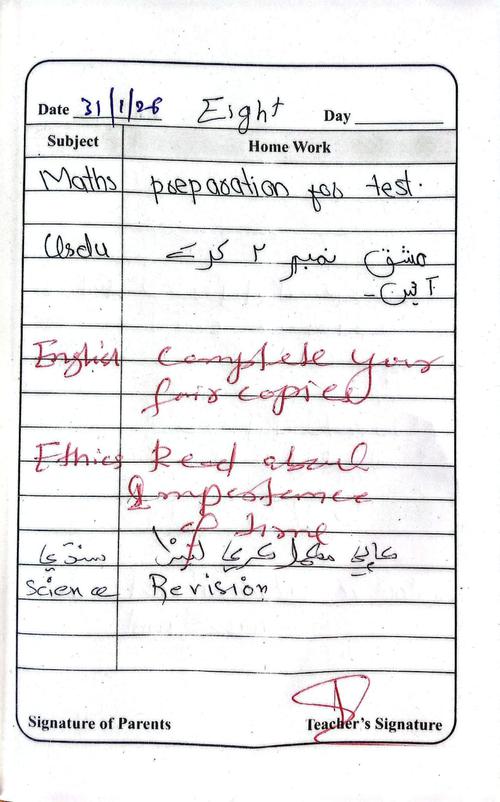 Date 31/1/26 Eight Day
Subject Home Work
Maths preparation for test.
Urdu مشق نمبر ۲ کرکے
آئیں۔
English Complete your
fair copies
Ethics Read about
Importance
of time
سنڌي ڪاپي مڪمل ڪري
Science Revision
Signature of Parents Teacher's Signature